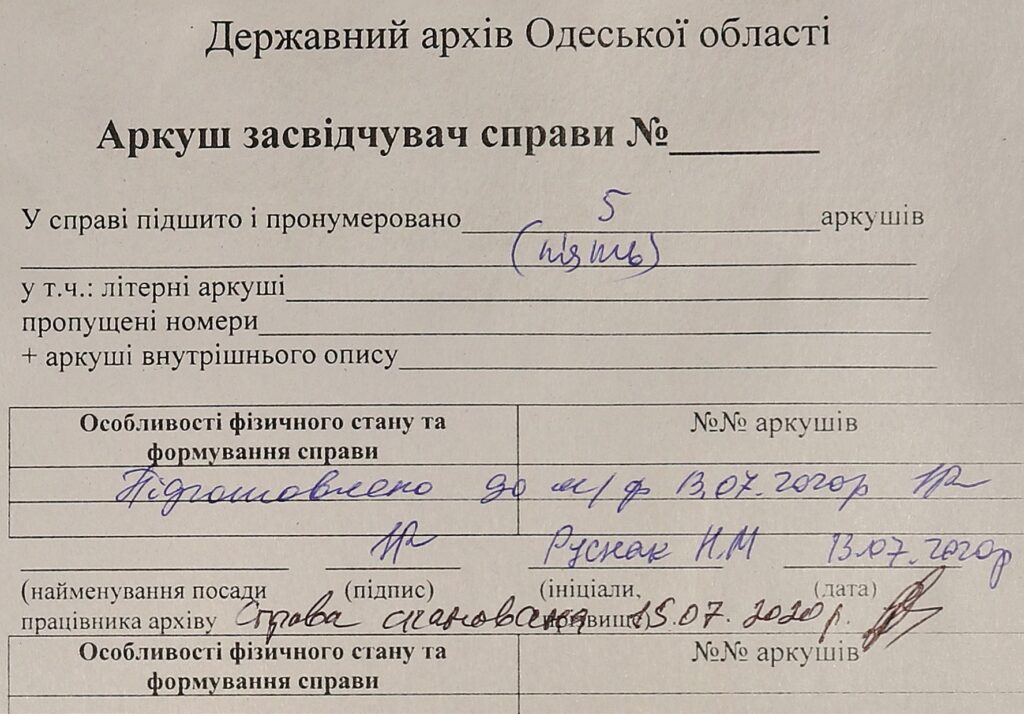 Державний архів Одеської області
Аркуш засвідчувач справи №
У справі підшито і пронумеровано 5 аркушів
(пять)
у т.ч.: літерні аркуші
пропущені номери
+ аркуші внутрішнього опису
Особливості фізичного стану та формування справи №№ аркушів
Підготовлено до м/ф 13.07.2020р
Руснак Н.М 13.07.2020р
(найменування посади працівника архіву (підпис) (ініціали, прізвище) (дата)
Справа сканована 15.07.2020р.
Особливості фізичного стану та формування справи №№ аркушів